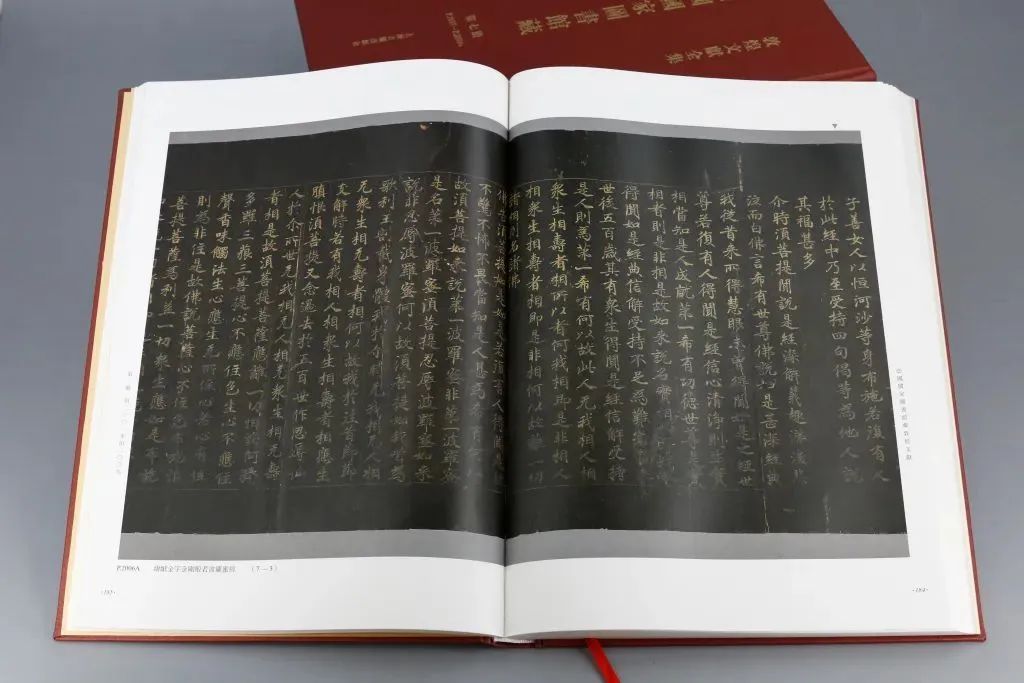 國國家圖書館藏
敦煌文獻全集
第七冊
子善女人以恒河沙等身布施若復有人
於此經中乃至受持四句偈等為他人說
其福甚多
尒時須菩提聞說是經深解義趣涕淚悲
泣而白佛言希有世尊佛說如是甚深經典
我從昔來所得慧眼未曾得聞如是之經世
尊若復有人得聞是經信心清淨則生實
相當知是人成就第一希有功德世尊是實
相者則是非相是故如來說名實相
得聞如是經典信解受持不足為難
世後五百歲其有眾生得聞是經信解受持
是人則為第一希有何以故此人无我相人相
眾生相壽者相所以者何我相即是非相人
相眾生相壽者相即是非相何以故離一切
諸相則名諸佛
佛告須菩提如是如是若復有人得聞是經
不驚不怖不畏當知是人甚為希有何以
故須菩提如來說第一波羅蜜非第一波羅蜜
是名第一波羅蜜須菩提忍辱波羅蜜如來
說非忍辱波羅蜜何以故須菩提如我昔為
歌利王割截身體我於尒時无我相无人相
无眾生相无壽者相何以故我於往昔節節
支解時若有我相人相眾生相壽者相應生
瞋恨須菩提又念過去於五百世作忍辱仙
人於尒所世无我相无人相无眾生相无壽
者相是故須菩提菩薩應離一切相發阿耨
多羅三藐三菩提心不應住色生心不應住
聲香味觸法生心應生无所住心
則為非住是故佛說菩薩心不應住色布施
菩提菩薩為利益一切眾生應如是布施
P.2006A 紺紙金字金剛般若波羅蜜經 (7—3)
·183·
·184·